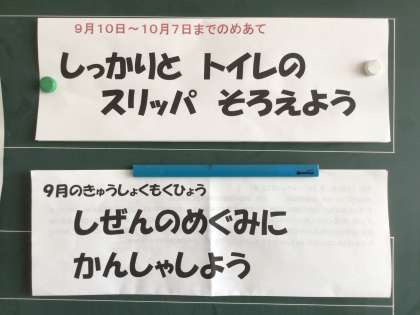 9月10日～10月7日までのめあて
しっかりと トイレの
スリッパ そろえよう
9月のきゅうしょくもくひょう
しぜんのめぐみに
かんしゃしよう